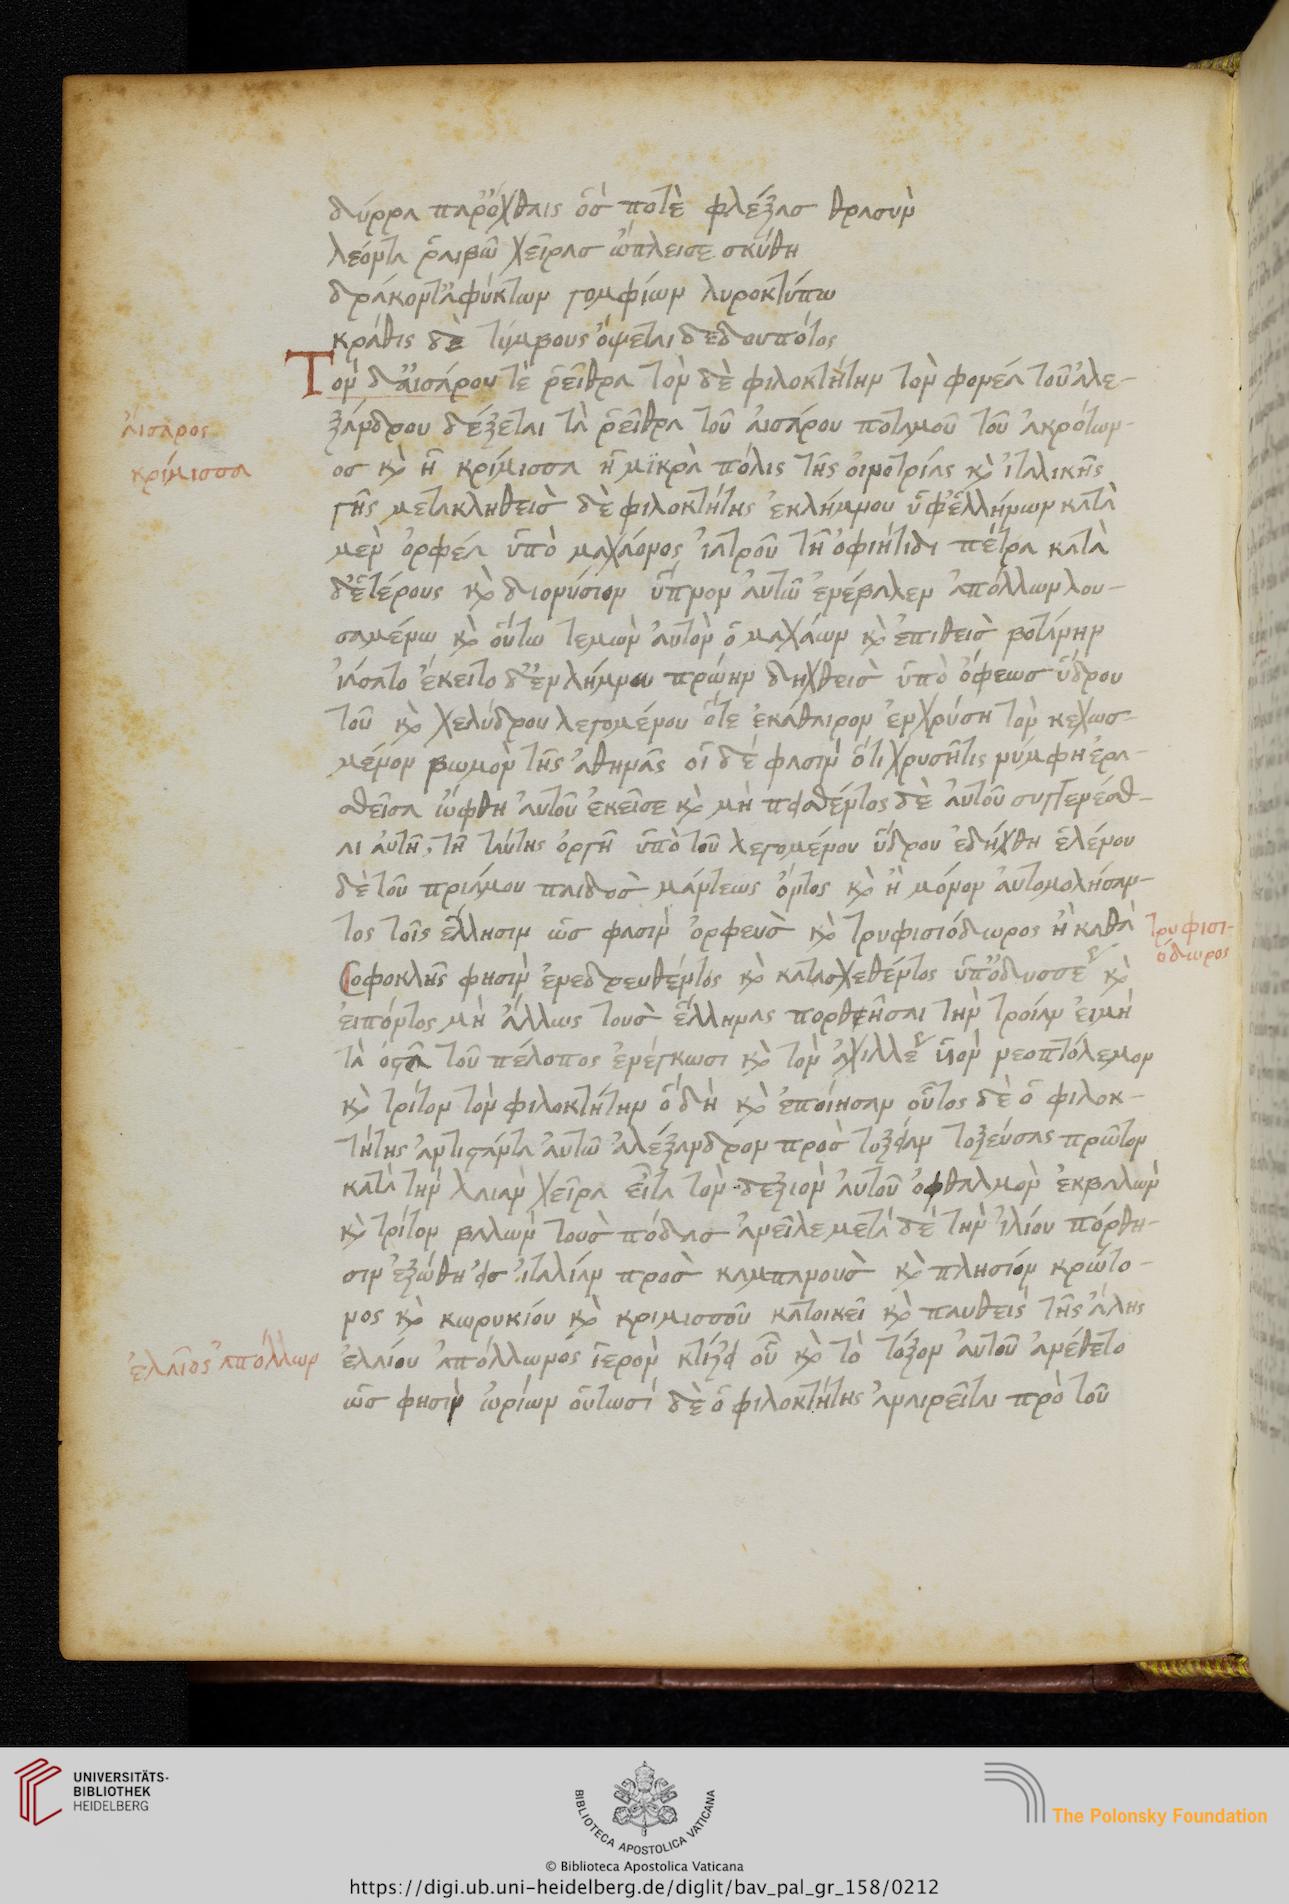 δύρρα παρ' ὄχθαις ὅς ποτὲ φλέξας θρασὺν
λέοντα ῥαιβῶ χεῖρας ὤπλεισε σκύθη
δράκοντ' ἀφύκτων γομφίων λυροκτύπω
κράθις δὲ τύμβους ὄψεται δεδουπότος
Τὸν δ' ἀισάρου τὲ ῥεῖθρα τὸν δὲ φιλοκτήτην τὸν φονέα τοῦ ἀλε-
ξάνδρου δέξεται τὰ ῥεῖθρα τοῦ ἀισάρου ποταμοῦ τοῦ ἀκρότων-
ἀίσαρος
ος κ̀ ἡ κρίμισσα ἡ μϊκρὰ πόλις τῆς οἰνοτρίας κ̀ ἰταλικῆς
κρίμισσα
γῆς μετακληθεὶς δὲ φιλοκτήτης ἐκ λήμνου ὑφ' ἑλλήνων κατὰ
μὲν ὀρφέα ὑπὸ μαχάονος ἰατροῦ τῆ ὀφιήτιδι πέτρα κατὰ
δ' ἑτέρους κ̀ διονύσιον ὕπνον ἀυτῶ ἐνέβαλεν ἀπόλλων λου-
σαμένω κ̀ οὕτω τεμὼν ἀυτὸν ὁ μαχάων κ̀ ἐπιθεὶς βοτάνην
ἰάσατο ἔκειτο δ' ἐν λήμνω πρώην δηχθεὶς ὑπὸ ὄφεως ὕδρου
τοῦ κ̀ χελύδρου λεγομένου ὅτε ἐκάθαιρον ἐν χρύση τὸν κεχωσ-
μένον βωμὸν τῆς ἀθηνᾶς οἱ δέ φασιν ὅτι χρυσῆτις νύμφη ἐρα-
σθεῖσα ὤφθη ἀυτοῦ ἐκεῖσε κ̀ μὴ πεισθέντος δὲ ἀυτοῦ συγγενέσθ-
αι ἀυτῆ, τῆ ταύτης ὀργῆ ὑπὸ τοῦ λεγομένου ὕδρου ἐδήχθη ἑλένου
δὲ τοῦ πριάμου παιδὸς μάντεως ὄντος κ̀ ἢ μόνον ἀυτομολήσαν-
τος τοῖς ἕλλησιν ὥς φασιν ὀρφεὺς κ̀ τρυφισιόδωρος ἢ καθὰ
τρυφισι-
όδωρος
Σοφοκλῆς φησὶν ἐνεδρευθέντος κ̀ κατασχεθέντος ὑπ' ὀδυσσέως κ̀
ἐιπόντος μὴ ἄλλως τοὺς ἕλληνας πορθῆσαι τὴν τροίαν ἐιμὴ
τὰ ὀστᾶ τοῦ πέλοπος ἐνέγκωσι κ̀ τὸν ἀχιλλέως ὑιὸν νεοπτόλεμον
κ̀ τρίτον τὸν φιλοκτήτην ὃ δὴ κ̀ ἐποίησαν οὗτος δὲ ὁ φιλοκ-
τήτης ἀντιστάντα ἀυτῶ ἀλέξανδρον πρὸς τοξείαν τοξεύσας πρῶτον
κατὰ τὴν λαιὰν χεῖρα εἶτα τὸν δεξιὸν ἀυτοῦ ὀφθαλμὸν ἐκβαλὼν
κ̀ τρίτον βαλὼν τοὺς πόδας ἀνεῖλε μετὰ δὲ τὴν ἰλίου πόρθη-
σιν ἐξώθη εἰς ἰταλίαν πρὸς καμπανοὺς κ̀ πλησίον κρώτο-
νος κ̀ κωρυκίου κ̀ κριμισσοῦ κατοικεῖ κ̀ παυθεὶς τῆς ἄλης
ἐλαίου ἀπόλλωνος ἱερὸν κτίζει οὗ κ̀ τὸ τόξον ἀυτοῦ ἀνέθετο
ἐλαῖος ἀπόλλων
ὥς φησιν ὠρίων οὑτωσί δὲ ὁ φιλοκτήτης ἀναιρεῖται πρὸ τοῦ
UNIVERSITÄTS-
BIBLIOTHEK
HEIDELBERG
BIBLIOTECA APOSTOLICA VATICANA
The Polonsky Foundation
© Biblioteca Apostolica Vaticana
https://digi.ub.uni-heidelberg.de/diglit/bav_pal_gr_158/0212